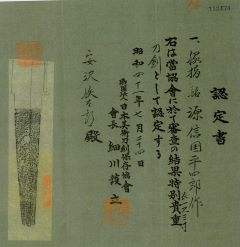 認定書
一、脇指 銘 源信国平四郎作
長一尺三寸
右は當協會に於て審査の結果特別貴重
刀劍として認定する
昭和四十二年七月二十四日
財団法人日本美術刀剣保存協會
會長 細川護立
殿